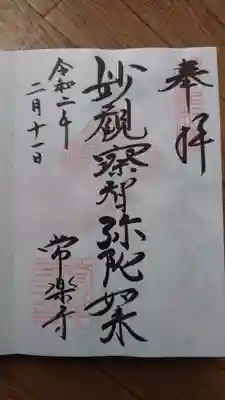 奉拝
妙観察智弥陀如来
常楽寺
令和二年
二月十一日